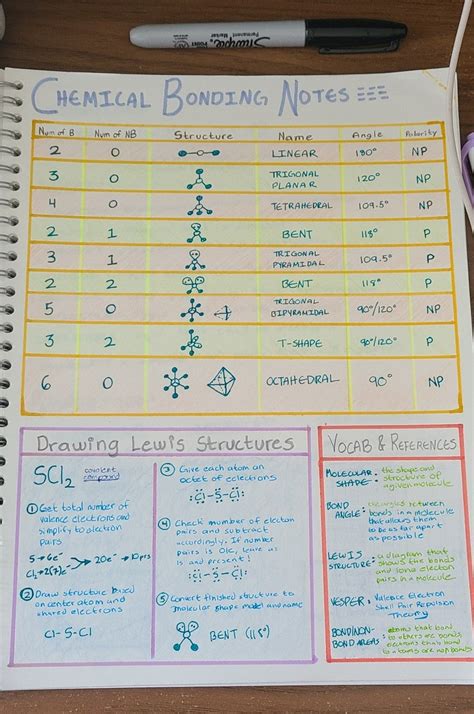 Sharpie
Permanent Marker
CHEMICAL BONDING NOTES
Num of B Num of NB Structure Name Angle Polarity
2 0 LINEAR 180° NP
3 0 TRIGONAL PLANAR 120° NP
4 0 TETRAHEDRAL 109.5° NP
2 1 BENT 118° P
3 1 TRIGONAL PYRAMIDAL 109.5° P
2 2 BENT 118° P
5 0 TRIGONAL BIPYRAMIDAL 90°/120° NP
3 2 T-SHAPE 90°/120° P
6 0 OCTAHEDRAL 90° NP
Drawing Lewis Structures
SCl₂ covalent
compound
① Get total number of
valence electrons and
simplify to electron
pairs
S → 6e⁻
Cl₂ → 2(7)e⁻ → 20e⁻ → 10prs
② Draw structure based
on center atom and
shared electrons
Cl-S-Cl
③ Give each atom an
octet of electrons
:Cl-S-Cl:
④ Check number of electron
pairs and subtract
accordingly. If number
pairs is OK, leave as
is and present!
:Cl-S-Cl:
⑤ Convert finished structure to
molecular shape model and name
BENT (118°)
VOCAB & REFERENCES
MOLECULAR SHAPE- the shape and
structure of
a given molecule
BOND ANGLE: the angles between
bonds in a molecule
that allows them
to be as far apart
as possible
LEWIS STRUCTURE: a diagram that
shows the bonds
and lone electron
pairs in a molecule
VESPER: Valence Electron
Shell Pair Repulsion
Theory
BOND/NON-BOND AREAS: atoms that bond
to others are bonds,